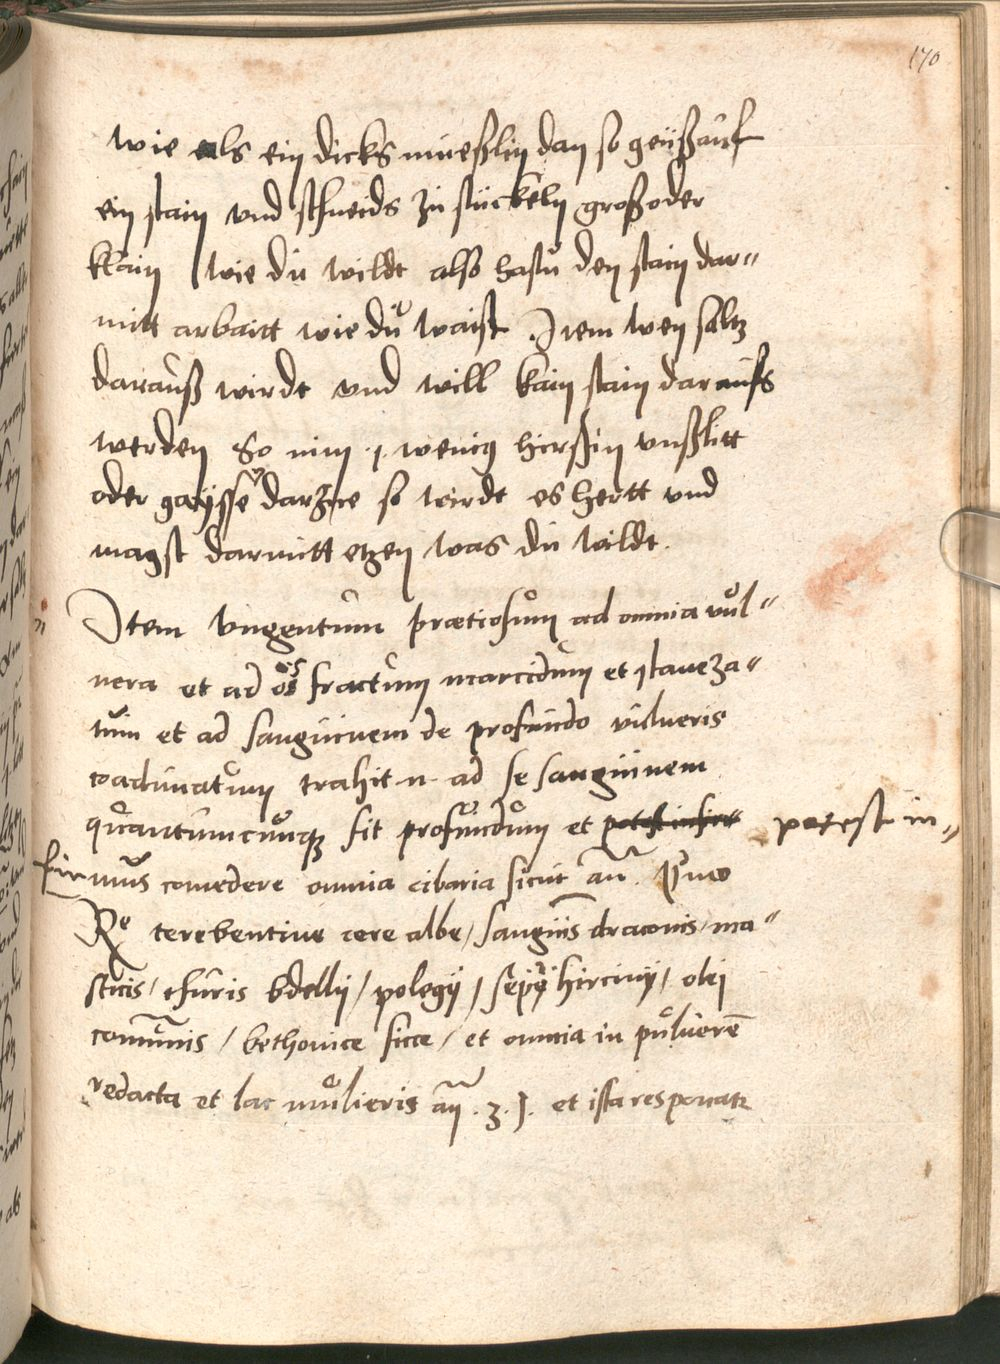 170
wie als ein dicks mueßlin dan so geüß auf
ein stain vnd schneids zu stückeln groß oder
klain wie du wildt also hastu den stain dar=
mitt arbaitt wie dü waist Item wen saltz
darauß wirdt vnd will kain stain darauß
werden So nim .1. wenig hirßin vnßlitt
oder gaysse darzue so wirdt es hertt vnd
magst darmitt etzen was du wildt.
Item Vngentum prætiosum ad omnia vul=
nera et ad os fractum marcidum et
tum et ad sanguinem de profundo vulneris
coadunatum trahit n ad se sanguinem
quantumcunq; sit profundum et potest in=
fir mus comedere omnia cibaria sicut an̄
Re terebentine cere albe / sanguis draconis / ma=
sticis / thuris bdellij / polegij / sepij hircinij / olei
comunis / bethonice sicce / et omnia in puluerē
redacta et lac mulieris an̄ . ʒ . j . et ista